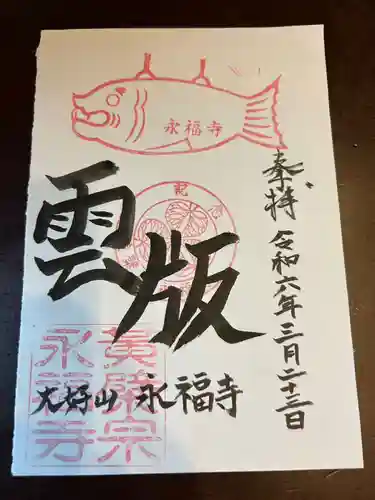 永福寺
奉拝 令和六年三月二十三日
雲版
大好山 永福寺
黄檗宗
永福寺